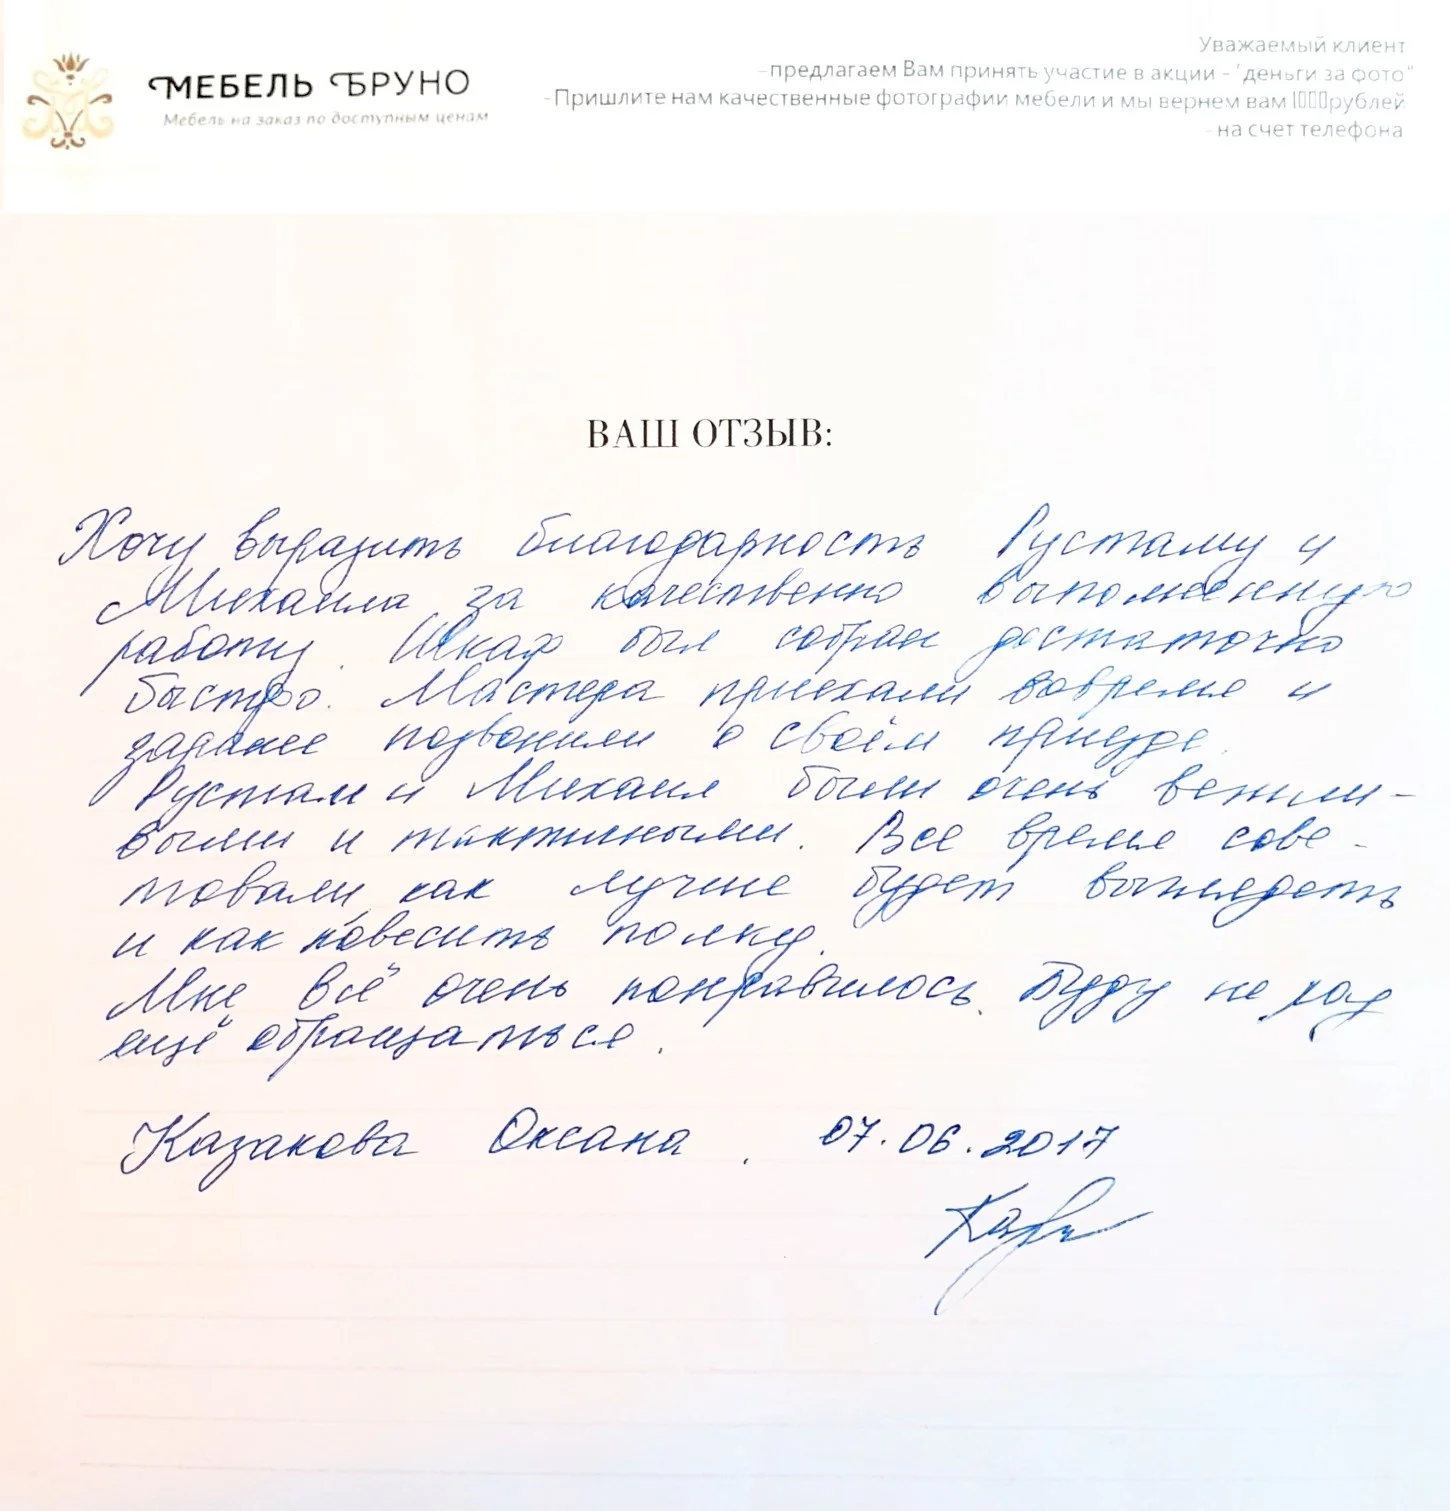 МЕБЕЛЬ БРУНО
Мебель на заказ по доступным ценам
Уважаемый клиент
-предлагаем Вам принять участие в акции - "деньги за фото"
-Пришлите нам качественные фотографии мебели и мы вернем вам 1000рублей
-на счет телефона
ВАШ ОТЗЫВ:
Хочу выразить благодарность Рустаму и
Михаила за качественно выполненную
работу. Шкаф был собран достаточно
быстро. Мастера приехали вовремя и
заранее позвонили о своём приезде.
Рустам и Михаил были очень вежли-
выми и тактичными. Все время сове-
товали как лучше будет выглядеть
и как повесить полку.
Мне всё очень понравилось. Буду не раз
ещё обращаться.
Казакова Оксана. 07.06.2017